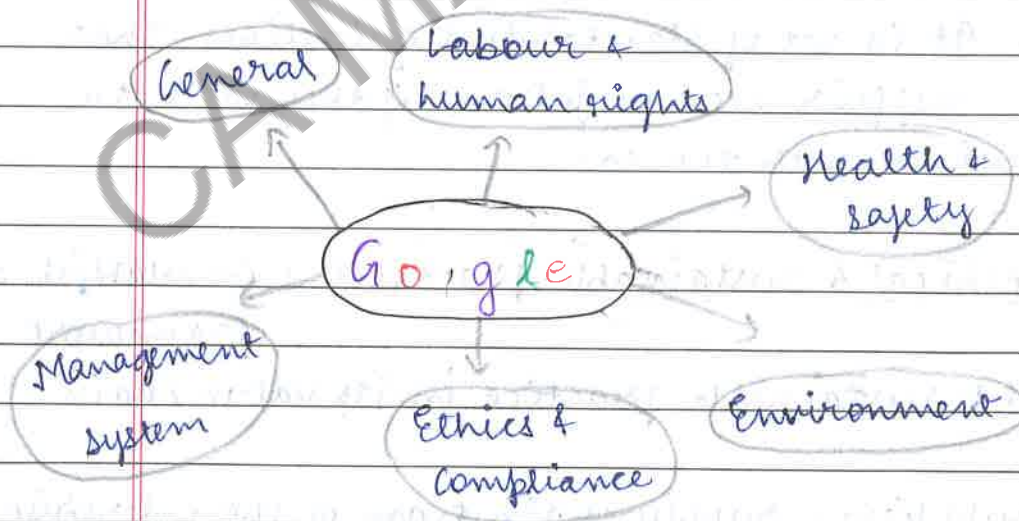 General
Labour &
human rights
Health &
safety
Go,gle
Management
system
Ethics &
compliance
Environment